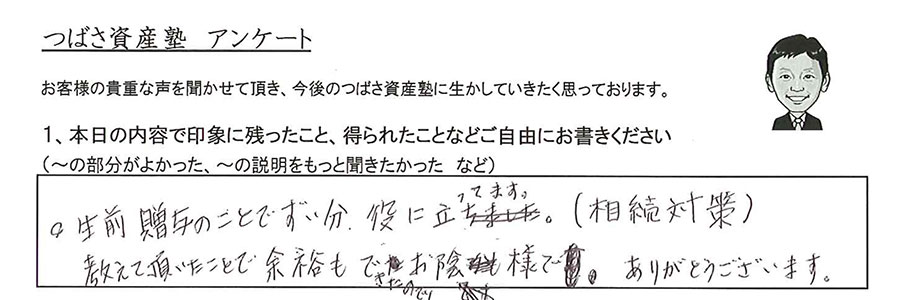 つばさ資産塾 アンケート
お客様の貴重な声を聞かせて頂き、今後のつばさ資産塾に生かしていきたく思っております。
１、本日の内容で印象に残ったこと、得られたことなどご自由にお書きください
（～の部分がよかった、～の説明をもっと聞きたかった など）
生前贈与のことでずい分、役に立ってます。（相続対策）
教えて頂いたことで余裕もできたのでお陰様で。ありがとうございます。